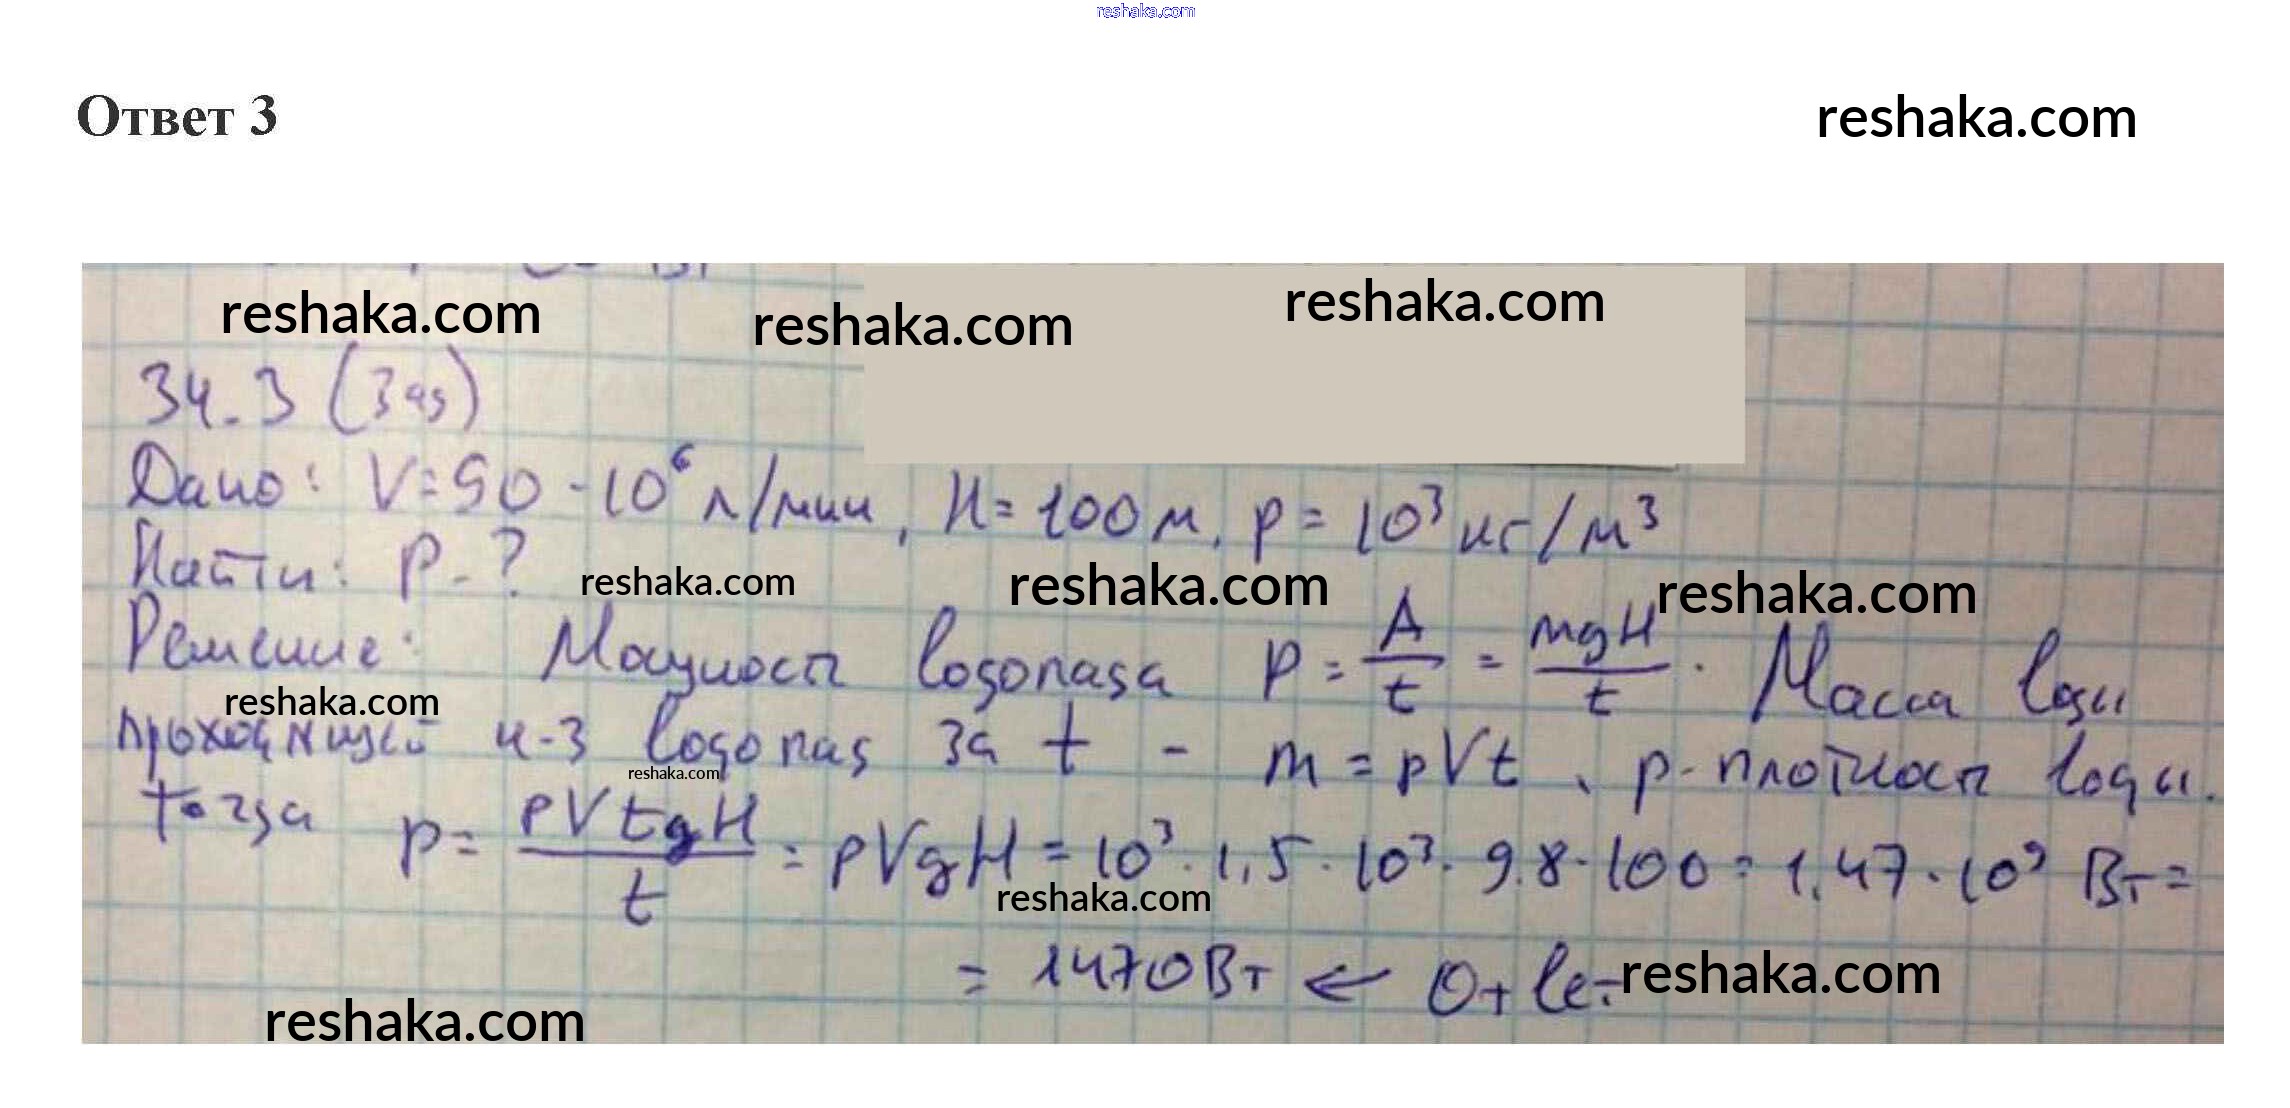 reshaka.com
Ответ 3
reshaka.com
reshaka.com
reshaka.com
reshaka.com
34.3 (Зад)
Дано: V=90·10⁶ л/мин, H=100м, ρ=10³ кг/м³
Найти: P-?
reshaka.com
reshaka.com
reshaka.com
Решение: Мощность водопада P = A/t = mgH/t. Масса воды
reshaka.com
проходящей ч-з водопад за t - m = ρVt, ρ-плотность воды.
reshaka.com
Тогда P = ρVtgH/t = ρVgH = 10³·1,5·10³·9.8·100 = 1.47·10⁹ Вт =
reshaka.com
= 1470Вт ← Ответ
reshaka.com
reshaka.com